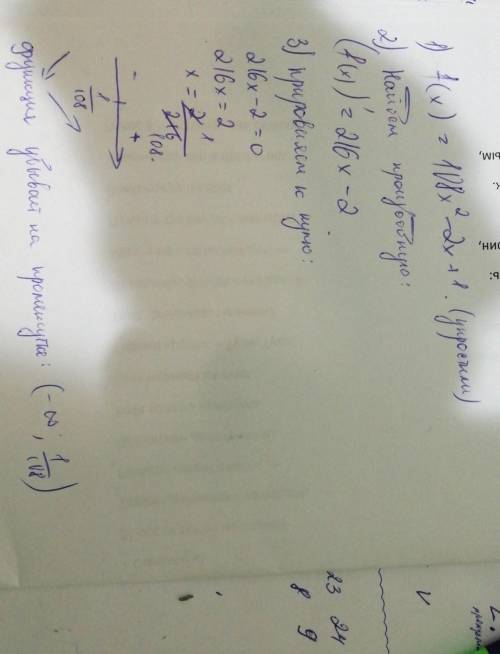 1) f(x) = 108x² - 2x + 1. (упростили)
2) Найдём производную:
(f(x))' = 216x - 2.
3) Приравняем к нулю:
216x - 2 = 0
216x = 2
x = 2/216 1/108.
- +
1/108
Функция убывает на промежутке: (-∞; 1/108)
ым,
к.
рин,
ь:
V
23 24
8 9